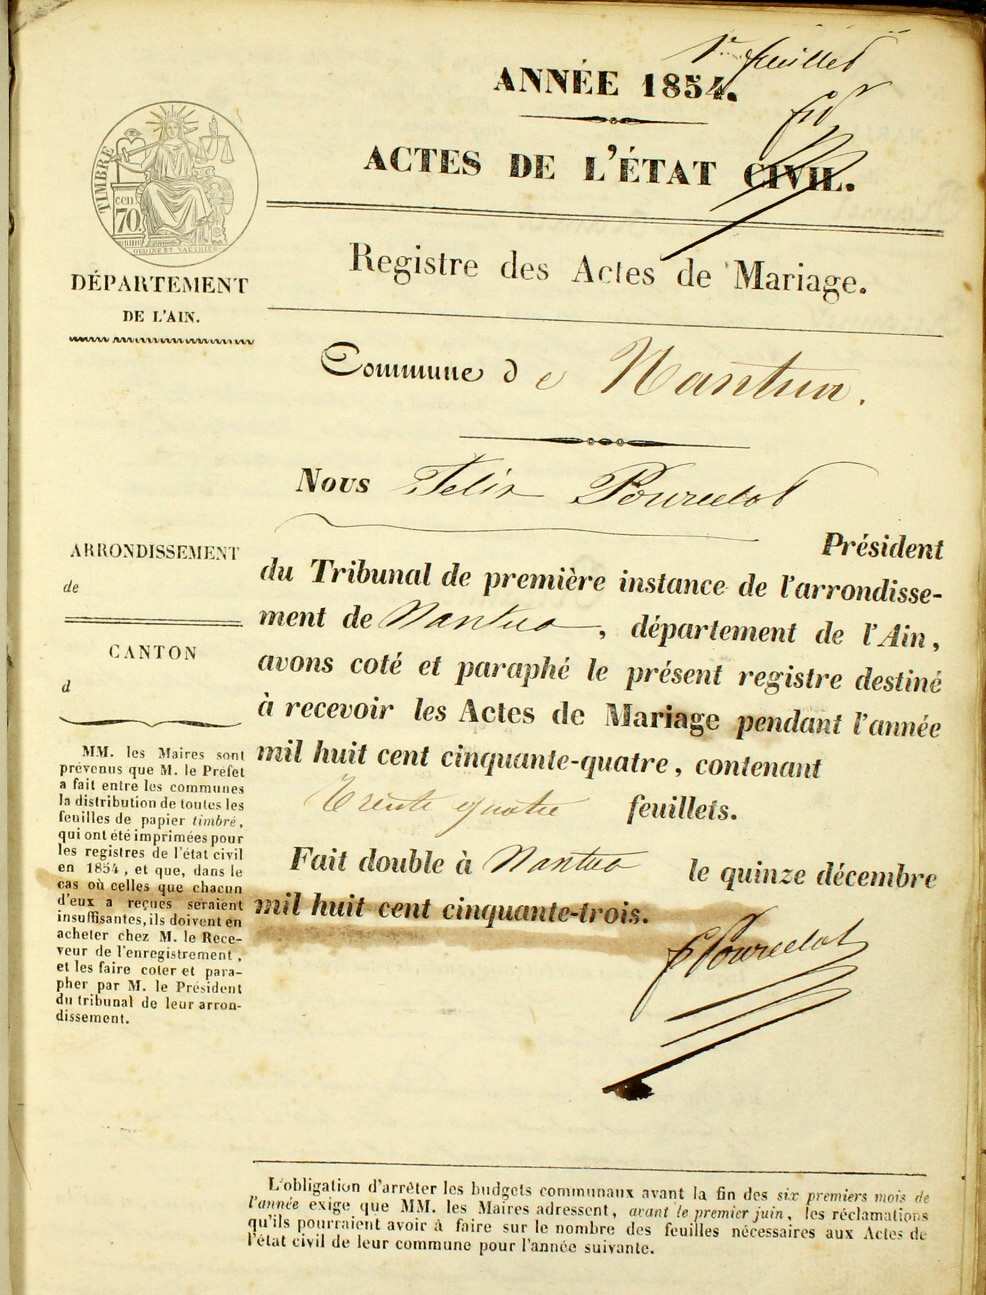 1er feuillet
ANNÉE 1854.
ACTES DE L'ÉTAT CIVIL.
TIMBRE
cen.
70.
DÉPARTEMENT
DE L'AIN.
Registre des Actes de Mariage.
Commune de Nantua.
Nous Felix Pourcelot
Président
du Tribunal de première instance de l'arrondisse-
ment de Nantua, département de l'Ain,
avons coté et paraphé le présent registre destiné
à recevoir les Actes de Mariage pendant l'année
mil huit cent cinquante-quatre, contenant
Trente quatre feuillets.
Fait double à Nantua le quinze décembre
mil huit cent cinquante-trois.
F Pourcelot
ARRONDISSEMENT
de
CANTON
d
MM. les Maires sont
prévenus que M. le Préfet
a fait entre les communes
la distribution de toutes les
feuilles de papier timbré,
qui ont été imprimées pour
les registres de l'état civil
en 1854, et que, dans le
cas où celles que chacun
d'eux a reçues seraient
insuffisantes, ils doivent en
acheter chez M. le Rece-
veur de l'enregistrement,
et les faire coter et para-
pher par M. le Président
du tribunal de leur arron-
dissement.
L'obligation d'arrêter les budgets communaux avant la fin des six premiers mois de
l'année exige que MM. les Maires adressent, avant le premier juin, les réclamations
qu'ils pourraient avoir à faire sur le nombre des feuilles nécessaires aux Actes de
l'état civil de leur commune pour l'année suivante.